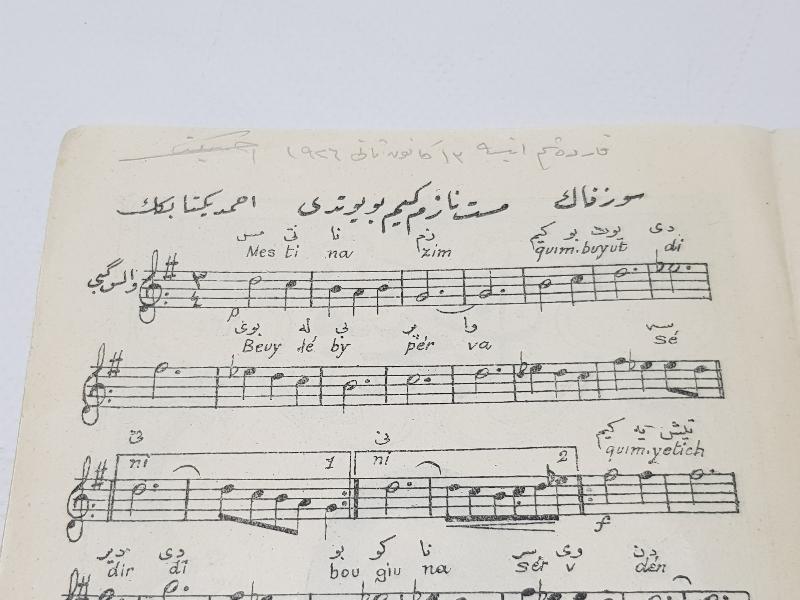 قارده شم انیسه ١٣ كانون ثانی ١٩٢٦
سوزناك مست نازم كیم بویوتدی احمد یكتا بكك
مس تی نا زم كیم بو یوت دی
Mes ti na zim quim.buyut di
والس گبی
٣
٤
p
بوی له بی پر وا سه
Beuy lé by pér va sé
نی نی
ni 1 ni 2
كیم یه تیش
quim.yetich
f
دی دیر بو كو نا سر وی دن
dir di bou giu na sér v dén